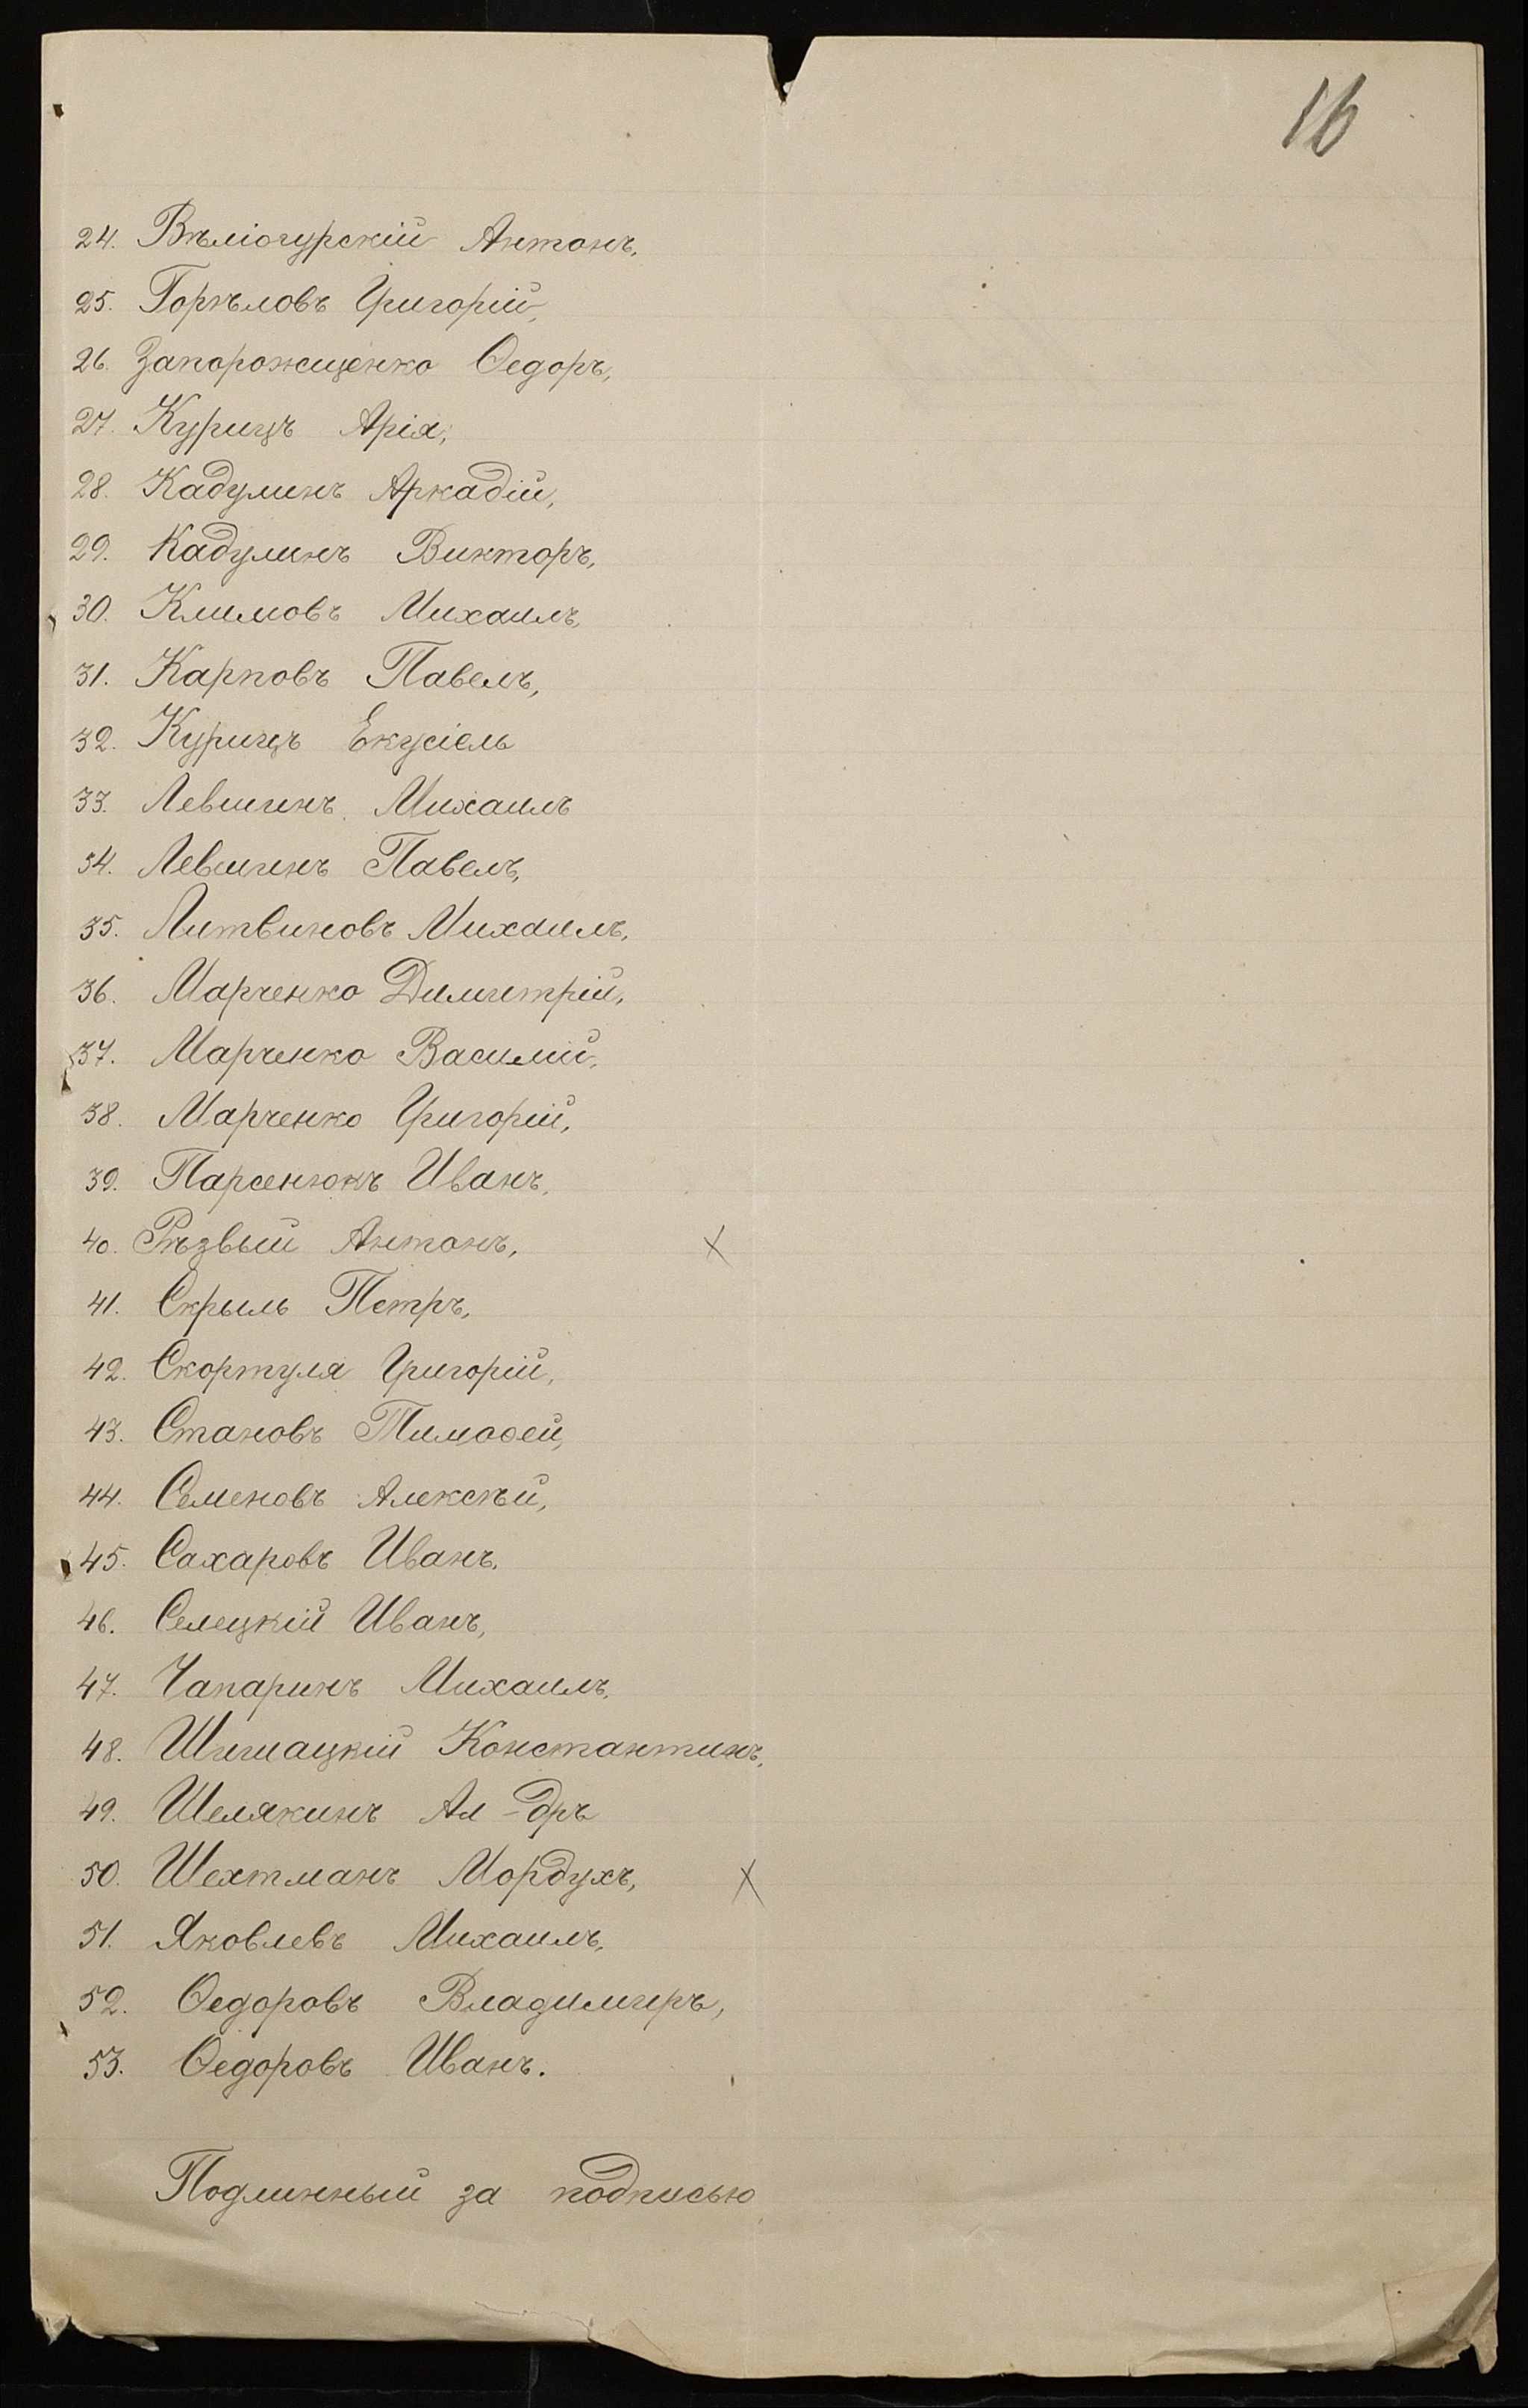 16
24. Вѣліогурскій Антонъ,
25. Горѣловъ Григорій,
26. Запорожщенко Ѳедоръ,
27. Курицъ Арія,
28. Кадулинъ Аркадій,
29. Кадулинъ Викторъ,
30. Климовъ Михаилъ,
31. Карповъ Павелъ,
32. Курицъ Екусіель
33. Левшинъ Михаилъ
34. Левшинъ Павелъ,
35. Литвиновъ Михаилъ,
36. Марченко Димитрій,
37. Марченко Василій,
38. Марченко Григорій,
39. Парсенюкъ Иванъ,
40. Рѣзвый Антонъ, х
41. Скрыль Петръ,
42. Скортуля Григорій,
43. Становъ Тимоѳей,
44. Семеновъ Алексѣй,
45. Сахаровъ Иванъ,
46. Селецкій Иванъ,
47. Чапаринъ Михаилъ,
48. Шишацкій Константинъ,
49. Шелякинъ Ал-дръ
50. Шехтманъ Мордухъ, х
51. Яковлевъ Михаилъ,
52. Ѳедоровъ Владимиръ,
53. Ѳедоровъ Иванъ.
Подлинный за подписью